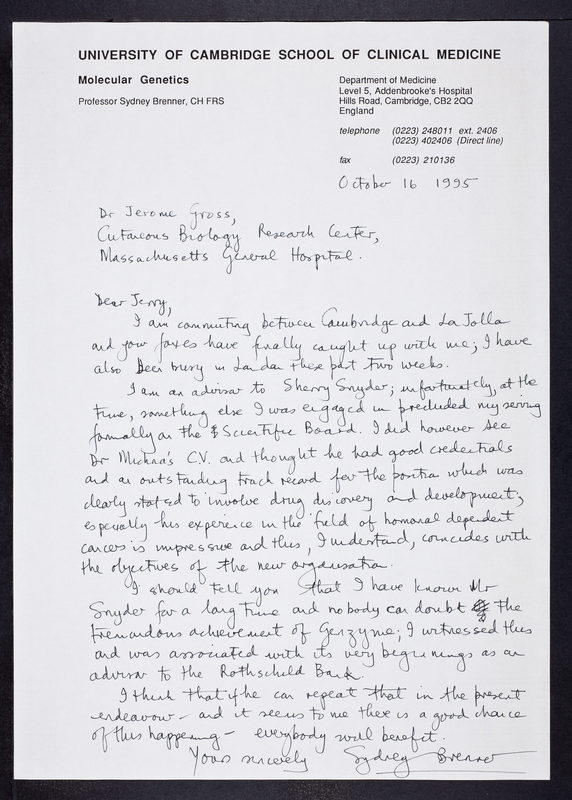 UNIVERSITY OF CAMBRIDGE SCHOOL OF CLINICAL MEDICINE
Molecular Genetics
Professor Sydney Brenner, CH FRS
Department of Medicine
Level 5, Addenbrooke's Hospital
Hills Road, Cambridge, CB2 2QQ
England
telephone (0223) 248011 ext. 2406
(0223) 402406 (Direct line)
fax (0223) 210136
October 16 1995
Dr Jerome Gross,
Cutaneous Biology Research Center,
Massachusetts General Hospital.
Dear Jerry,
I am commuting between Cambridge and La Jolla
and your faxes have finally caught up with me; I have
also been busy in London these past two weeks.
I am an advisor to Sherry Snyder; unfortunately, at the
time, something else I was engaged in precluded my serving
formally on the Scientific Board. I did however see
Dr CV. and thought he had good credentials
and an outstanding track record for the position which was
clearly stated to involve drug discovery and development;
especially his experience in the field of hormonal dependent
cancers is impressive and this, I understand, coincides with
the objectives of the new organisation.
I should tell you that I have known Mr
Snyder for a long time and nobody can doubt the
tremendous achievement of Genzyme; I witnessed this
and was associated with its very beginnings as an
advisor to the Rothschild Bank.
I think that if he can repeat that in the present
endeavour - and it seems to me there is a good chance
of this happening - everybody will benefit.
Yours sincerely Sydney Brenner